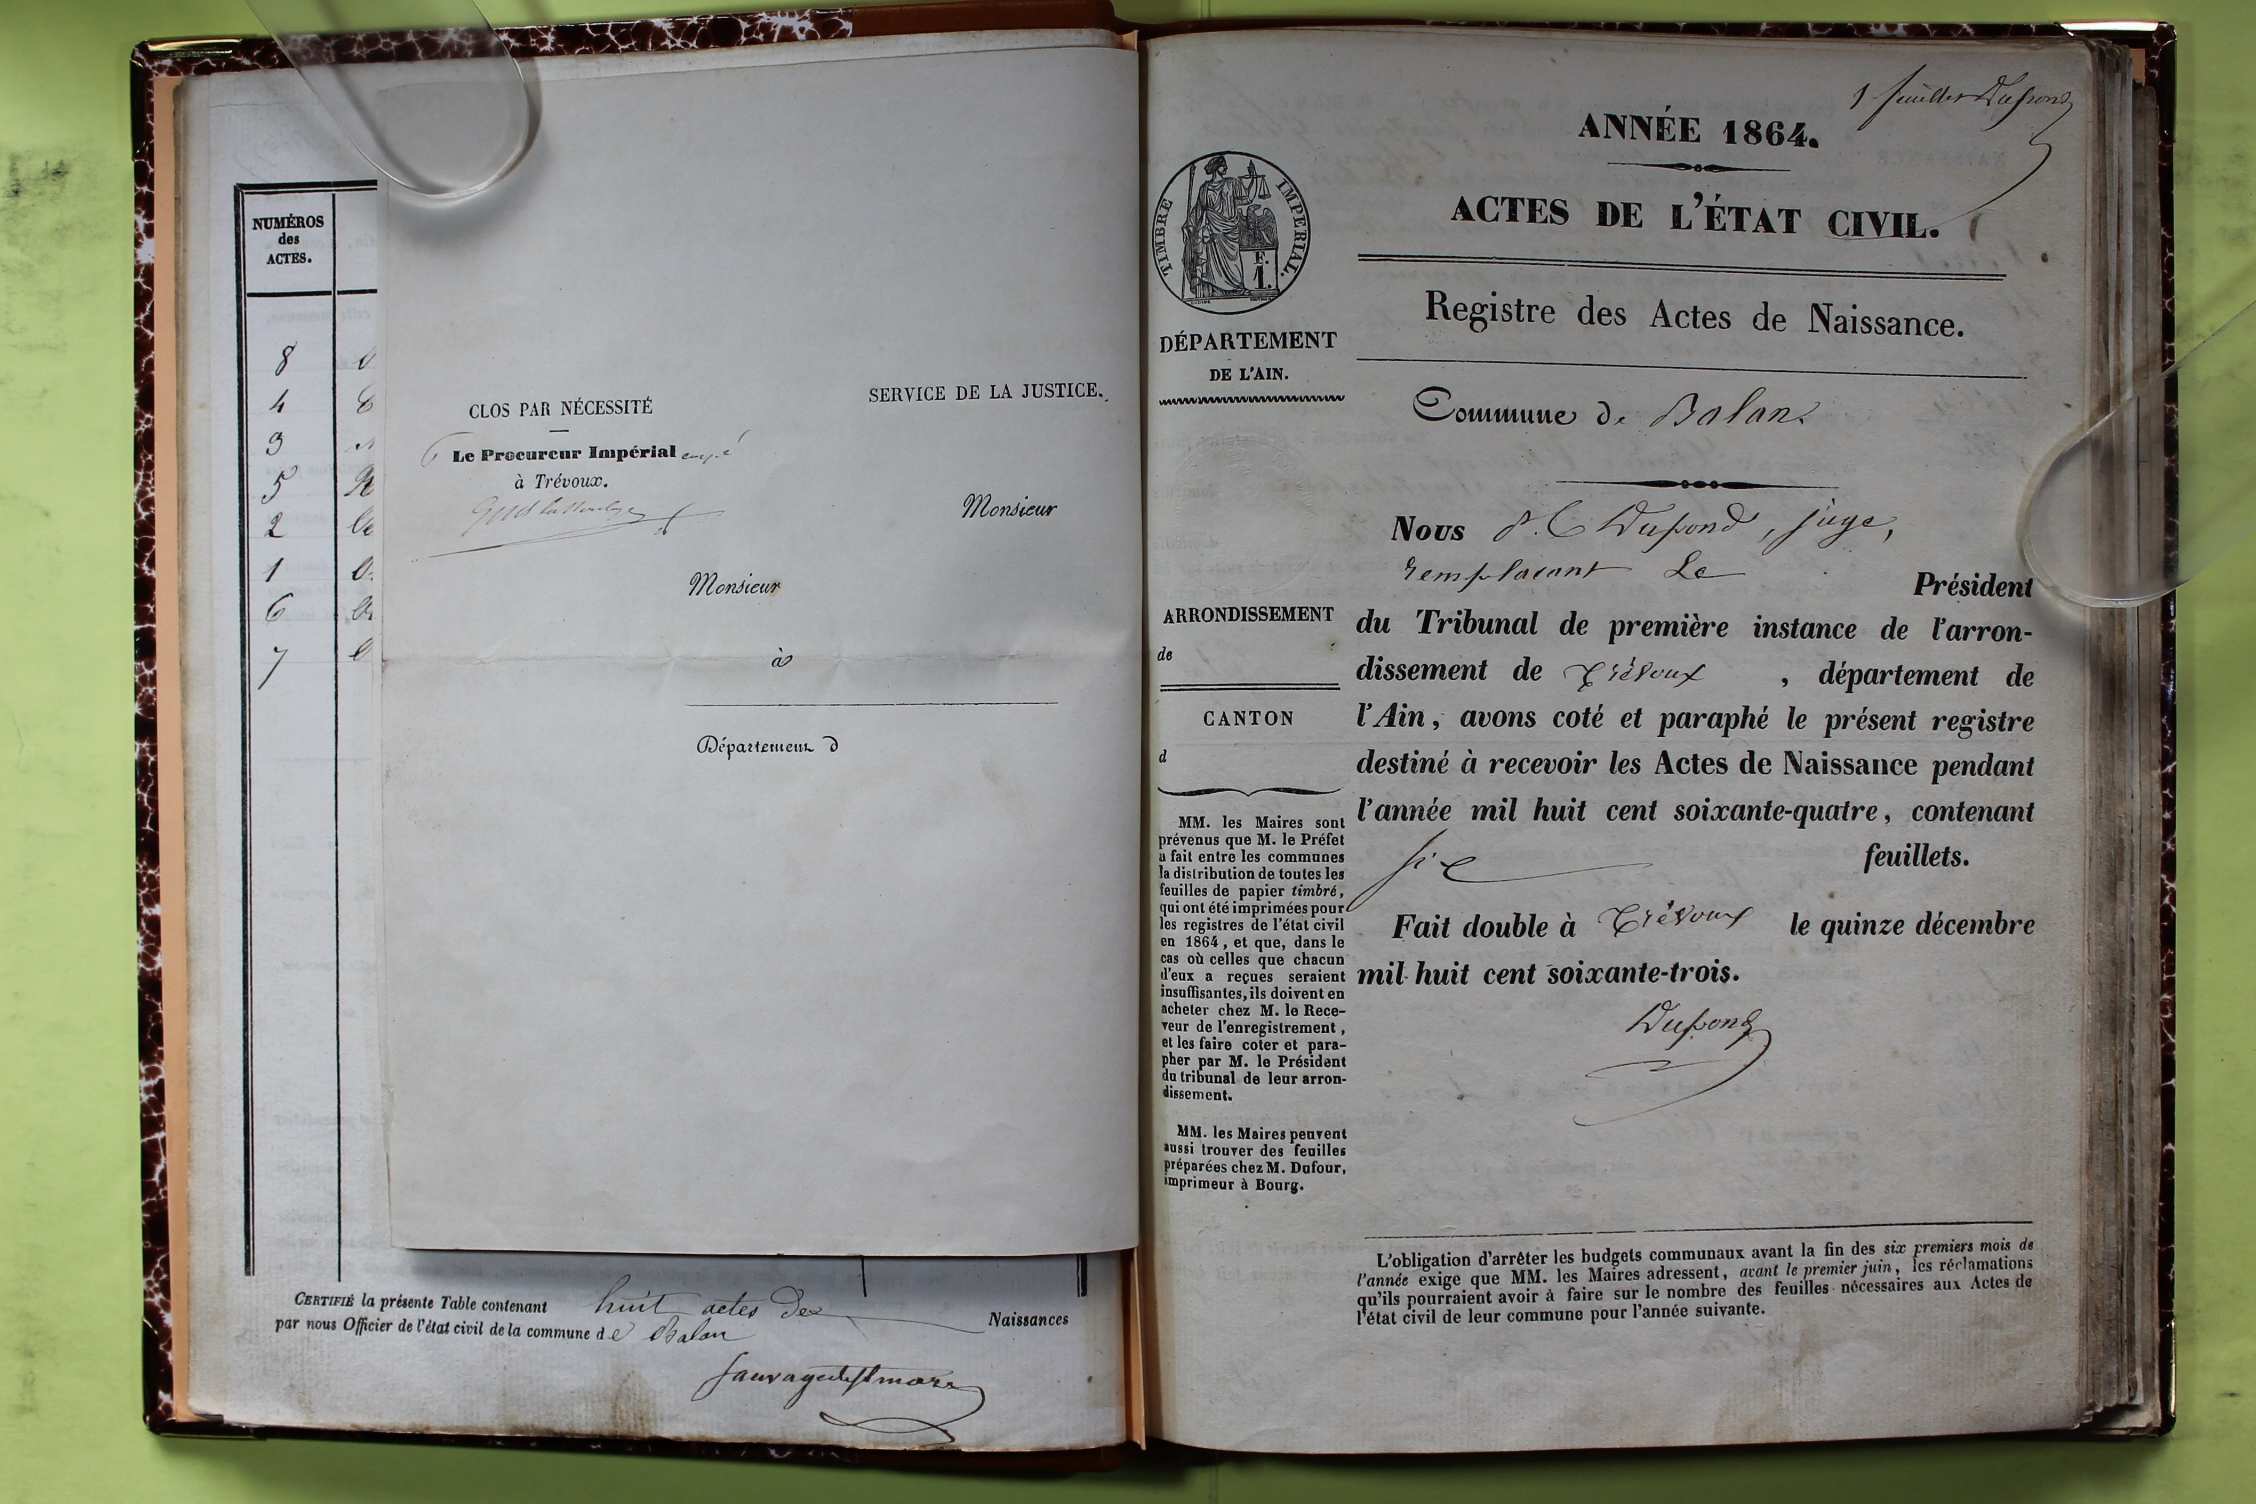 NUMÉROS
des
ACTES.
8
4
3
5
2
1
6
7
CLOS PAR NÉCESSITÉ
Le Procureur Impérial
à Trévoux.
SERVICE DE LA JUSTICE.
Monsieur
Monsieur
à
Département d
CERTIFIÉ la présente Table contenant huit actes de Naissances
par nous Officier de l'état civil de la commune de Balan
1r feuillet Dupond
ANNÉE 1864.
ACTES DE L'ÉTAT CIVIL.
TIMBRE IMPERIAL.
F.
1.
Registre des Actes de Naissance.
DÉPARTEMENT
DE L'AIN.
Commune de Balan
ARRONDISSEMENT
de
CANTON
d
MM. les Maires sont
prévenus que M. le Préfet
a fait entre les communes
la distribution de toutes les
feuilles de papier timbré,
qui ont été imprimées pour
les registres de l'état civil
en 1864, et que, dans le
cas où celles que chacun
d'eux a reçues seraient
insuffisantes, ils doivent en
acheter chez M. le Rece-
veur de l'enregistrement,
et les faire coter et para-
pher par M. le Président
du tribunal de leur arron-
dissement.
MM. les Maires peuvent
aussi trouver des feuilles
préparées chez M. Dufour,
imprimeur à Bourg.
Nous Dupond, juge,
remplaçant Le Président
du Tribunal de première instance de l'arron-
dissement de Trévoux, département de
l'Ain, avons coté et paraphé le présent registre
destiné à recevoir les Actes de Naissance pendant
l'année mil huit cent soixante-quatre, contenant
six feuillets.
Fait double à Trévoux le quinze décembre
mil huit cent soixante-trois.
Dupond
L'obligation d'arrêter les budgets communaux avant la fin des six premiers mois de
l'année exige que MM. les Maires adressent, avant le premier juin, les réclamations
qu'ils pourraient avoir à faire sur le nombre des feuilles nécessaires aux Actes de
l'état civil de leur commune pour l'année suivante.